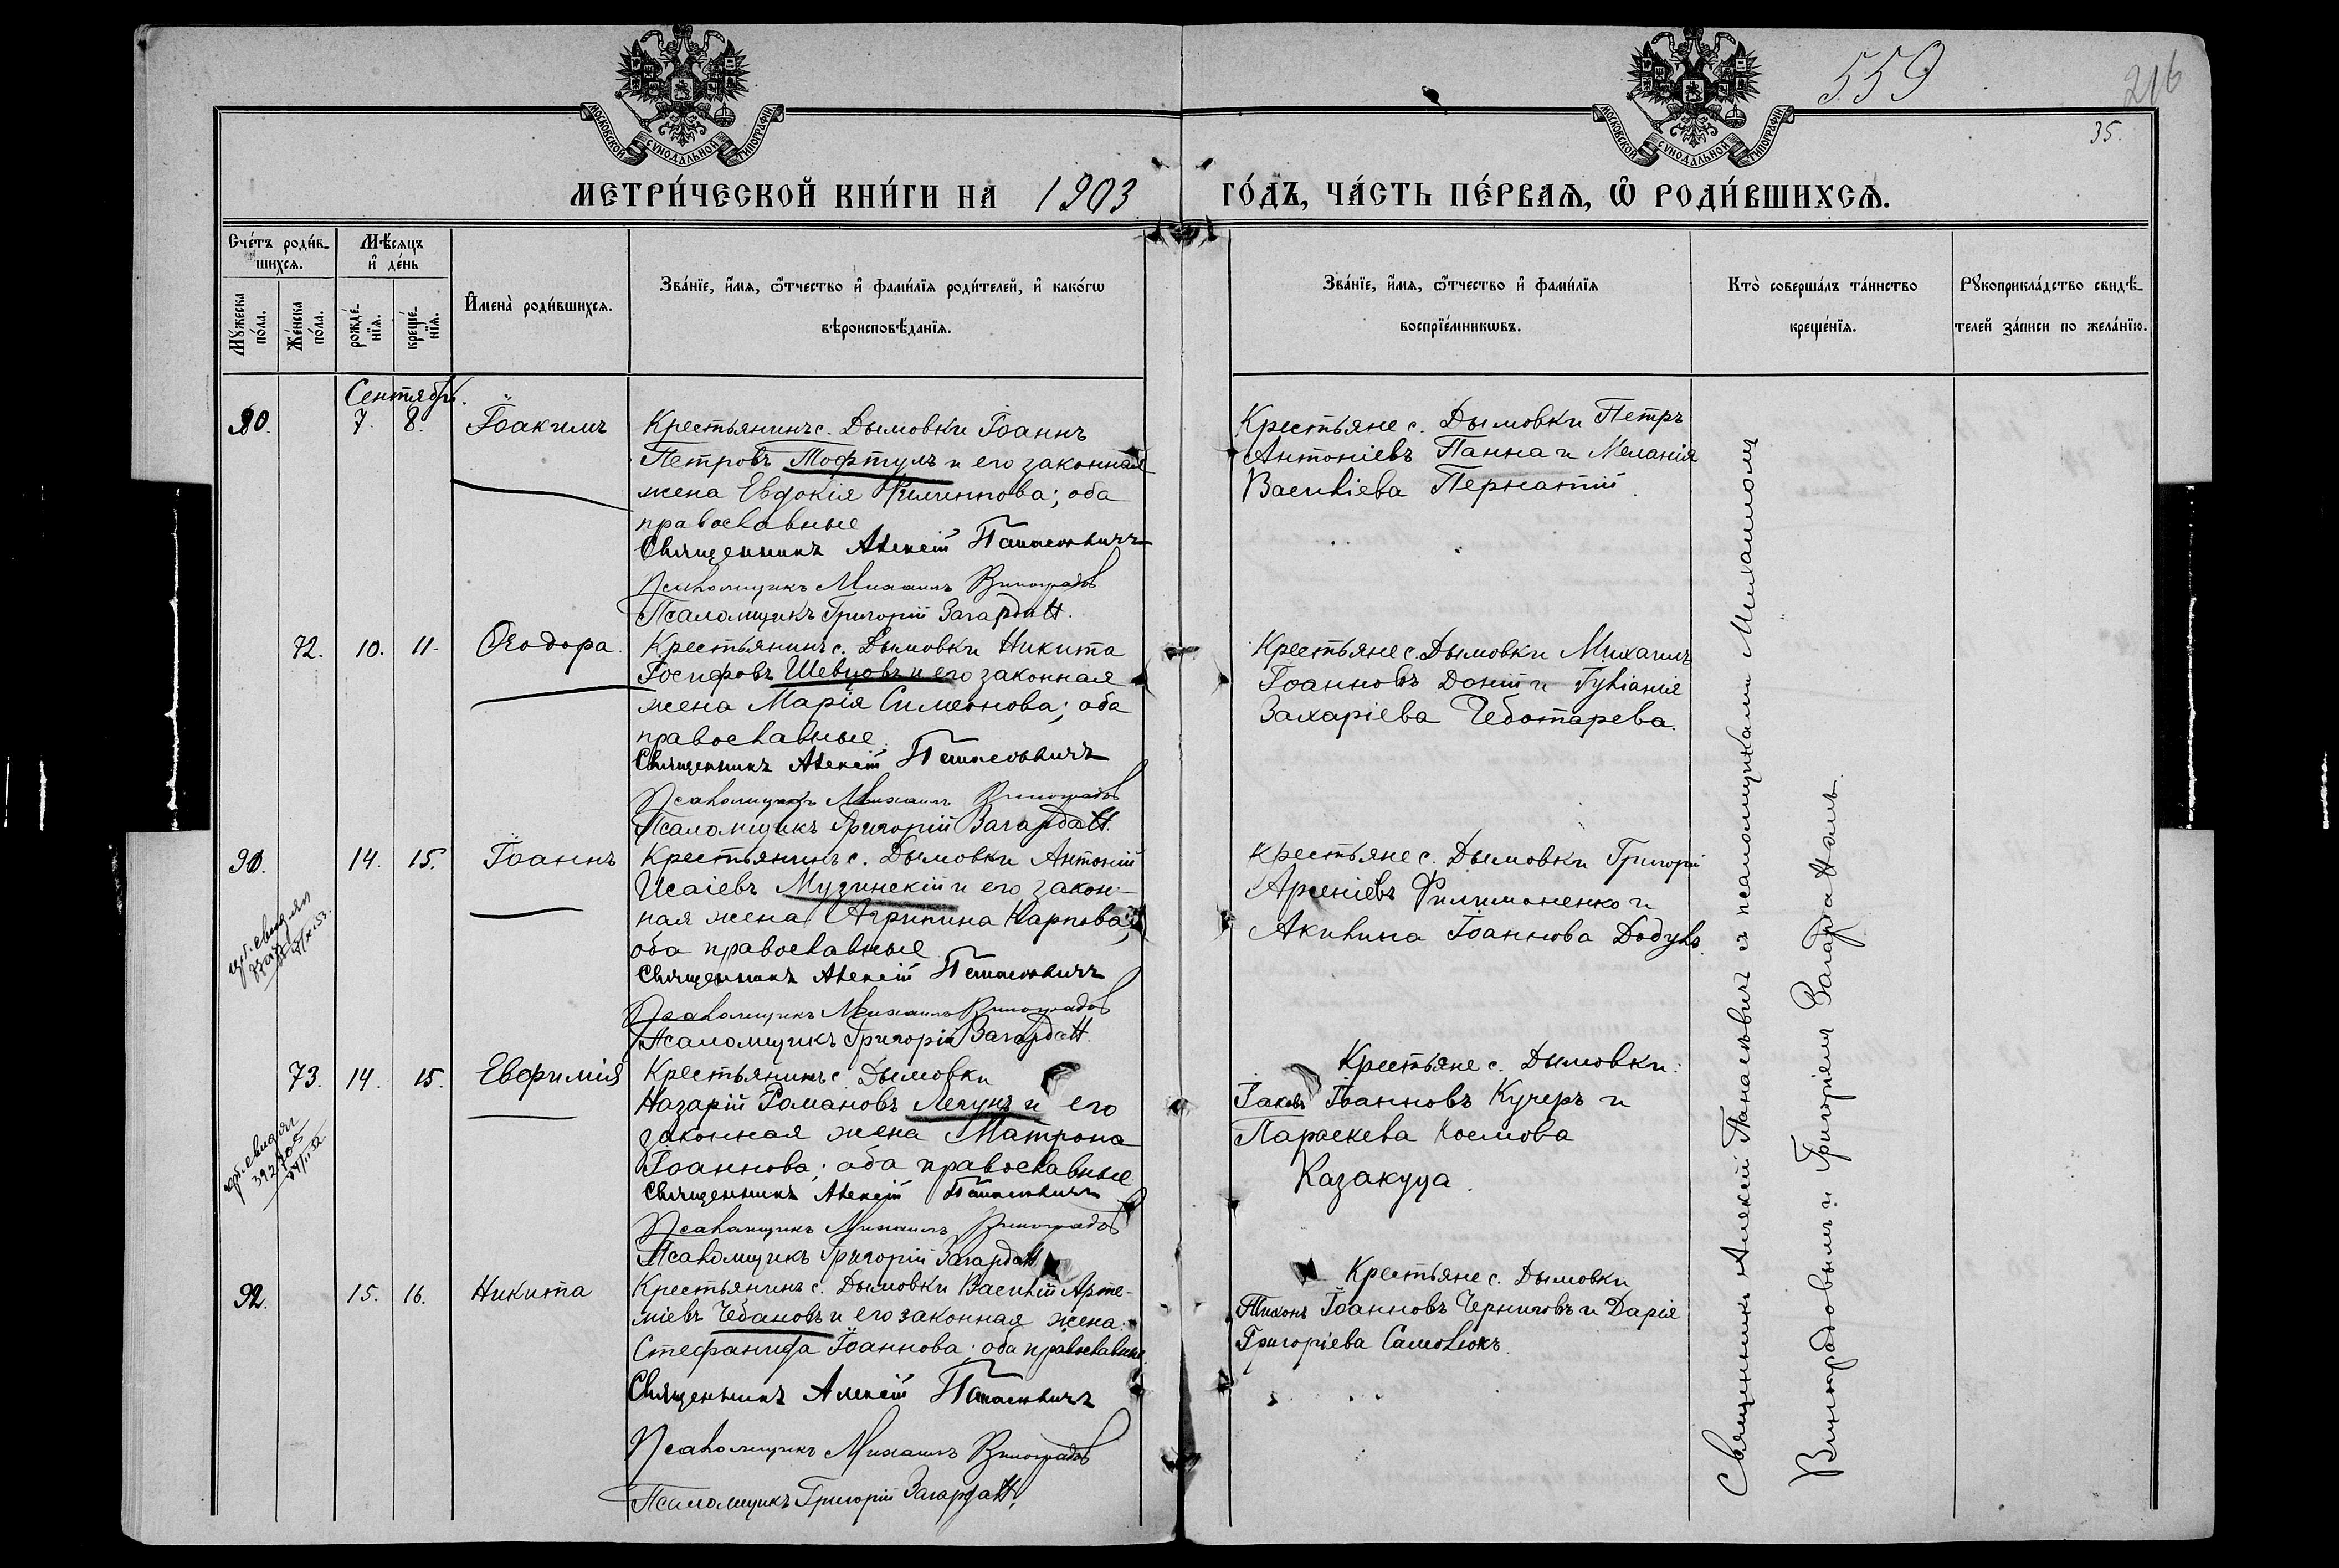 МОСКОВСКОЙ СѴНОДАЛЬНОЙ ТИПОГРАФІИ
МОСКОВСКОЙ СѴНОДАЛЬНОЙ ТИПОГРАФІИ
559
216
35.
МЕТРИ́ЧЕСКОЙ КНИ́ГИ НА 1903 ГО́ДЪ, ЧА́СТЬ ПЕ́РВАѦ, Ѡ҆ РОДИ́ВШИХСѦ.
Сче́тъ роди́в-
шихсѧ.
Мѣ́сѧцъ
и҆ де́нь
Мꙋ́жеска
по́ла.
Же́нска
по́ла.
рожде́-
нїѧ.
креще́-
нїѧ.
И҆мена̀ роди́вшихсѧ.
Зва́нїе, и҆́мѧ, ѻ҆́тчество и҆ фами́лїѧ роди́телей, и҆ како́гѡ
вѣроисповѣ́данїѧ.
Зва́нїе, и҆́мѧ, ѻ҆́тчество и҆ фами́лїѧ
воспрїе́мникѡвъ.
Кто̀ соверша́лъ та́инство
креще́нїѧ.
Рꙋкоприкла́дство свидѣ́-
телей за́писи по жела́нїю.
Сентябрь.
90. 7. 8. Іоакимъ
Крестьянинъ с. Дымовки Іоаннъ
Петровъ Мофтулъ и его законная
жена Евдокія Филиппова; оба
православные
Священникъ Алексій Панасевичъ
Псаломщикъ Михаилъ Виноградовъ
Псаломщикъ Григорій Вагардатъ.
Крестьяне с. Дымовки Петръ
Антоніевъ Панна и Меланія
Василіева Пернатій.
72. 10. 11. Ѳеодора.
Крестьянинъ с. Дымовки Никита
Іосифовъ Шевцовъ и его законная
жена Марія Симеонова; оба
православные.
Священникъ Алексій Панасевичъ
Псаломщикъ Михаилъ Виноградовъ
Псаломщикъ Григорій Вагардатъ.
Крестьяне с. Дымовки Михаилъ
Іоанновъ Доній и Іуліанія
Захаріева Чеботарева.
91. 14. 15. Іоаннъ
Крестьянинъ с. Дымовки Антоній
Исаіевъ Музинскій и его закон-
ная жена Агрипина Карпова;
оба православные
Священникъ Алексій Панасевичъ
Псаломщикъ Михаилъ Виноградовъ
Псаломщикъ Григорій Вагардатъ.
Крестьяне с. Дымовки Григорій
Арсеніевъ Филимоненко и
Акилина Іоаннова Додулъ.
73. 14. 15. Евфимія
Крестьянинъ с. Дымовки
Назарій Романовъ Легунъ и его
законная жена Матрона
Іоаннова; оба православные
Священникъ Алексій Панасевичъ
Псаломщикъ Михаилъ Виноградовъ
Псаломщикъ Григорій Вагардатъ
Крестьяне с. Дымовки:
Іаковъ Іоанновъ Кучеръ и
Параскева Космова
Казакуца.
92. 15. 16. Никита
Крестьянинъ с. Дымовки Василій Арте-
міевъ Чебановъ и его законная жена
Стефанида Іоаннова; оба православные.
Священникъ Алексій Панасевичъ
Псаломщикъ Михаилъ Виноградовъ
Псаломщикъ Григорій Вагардатъ.
Крестьяне с. Дымовки
Тихонъ Іоанновъ Черниговъ и Дарія
Григоріева Самолюкъ.
Священникъ Алексій Панасевичъ съ псаломщиками Михаиломъ
Виноградовымъ и Григоріемъ Вагардатомъ.